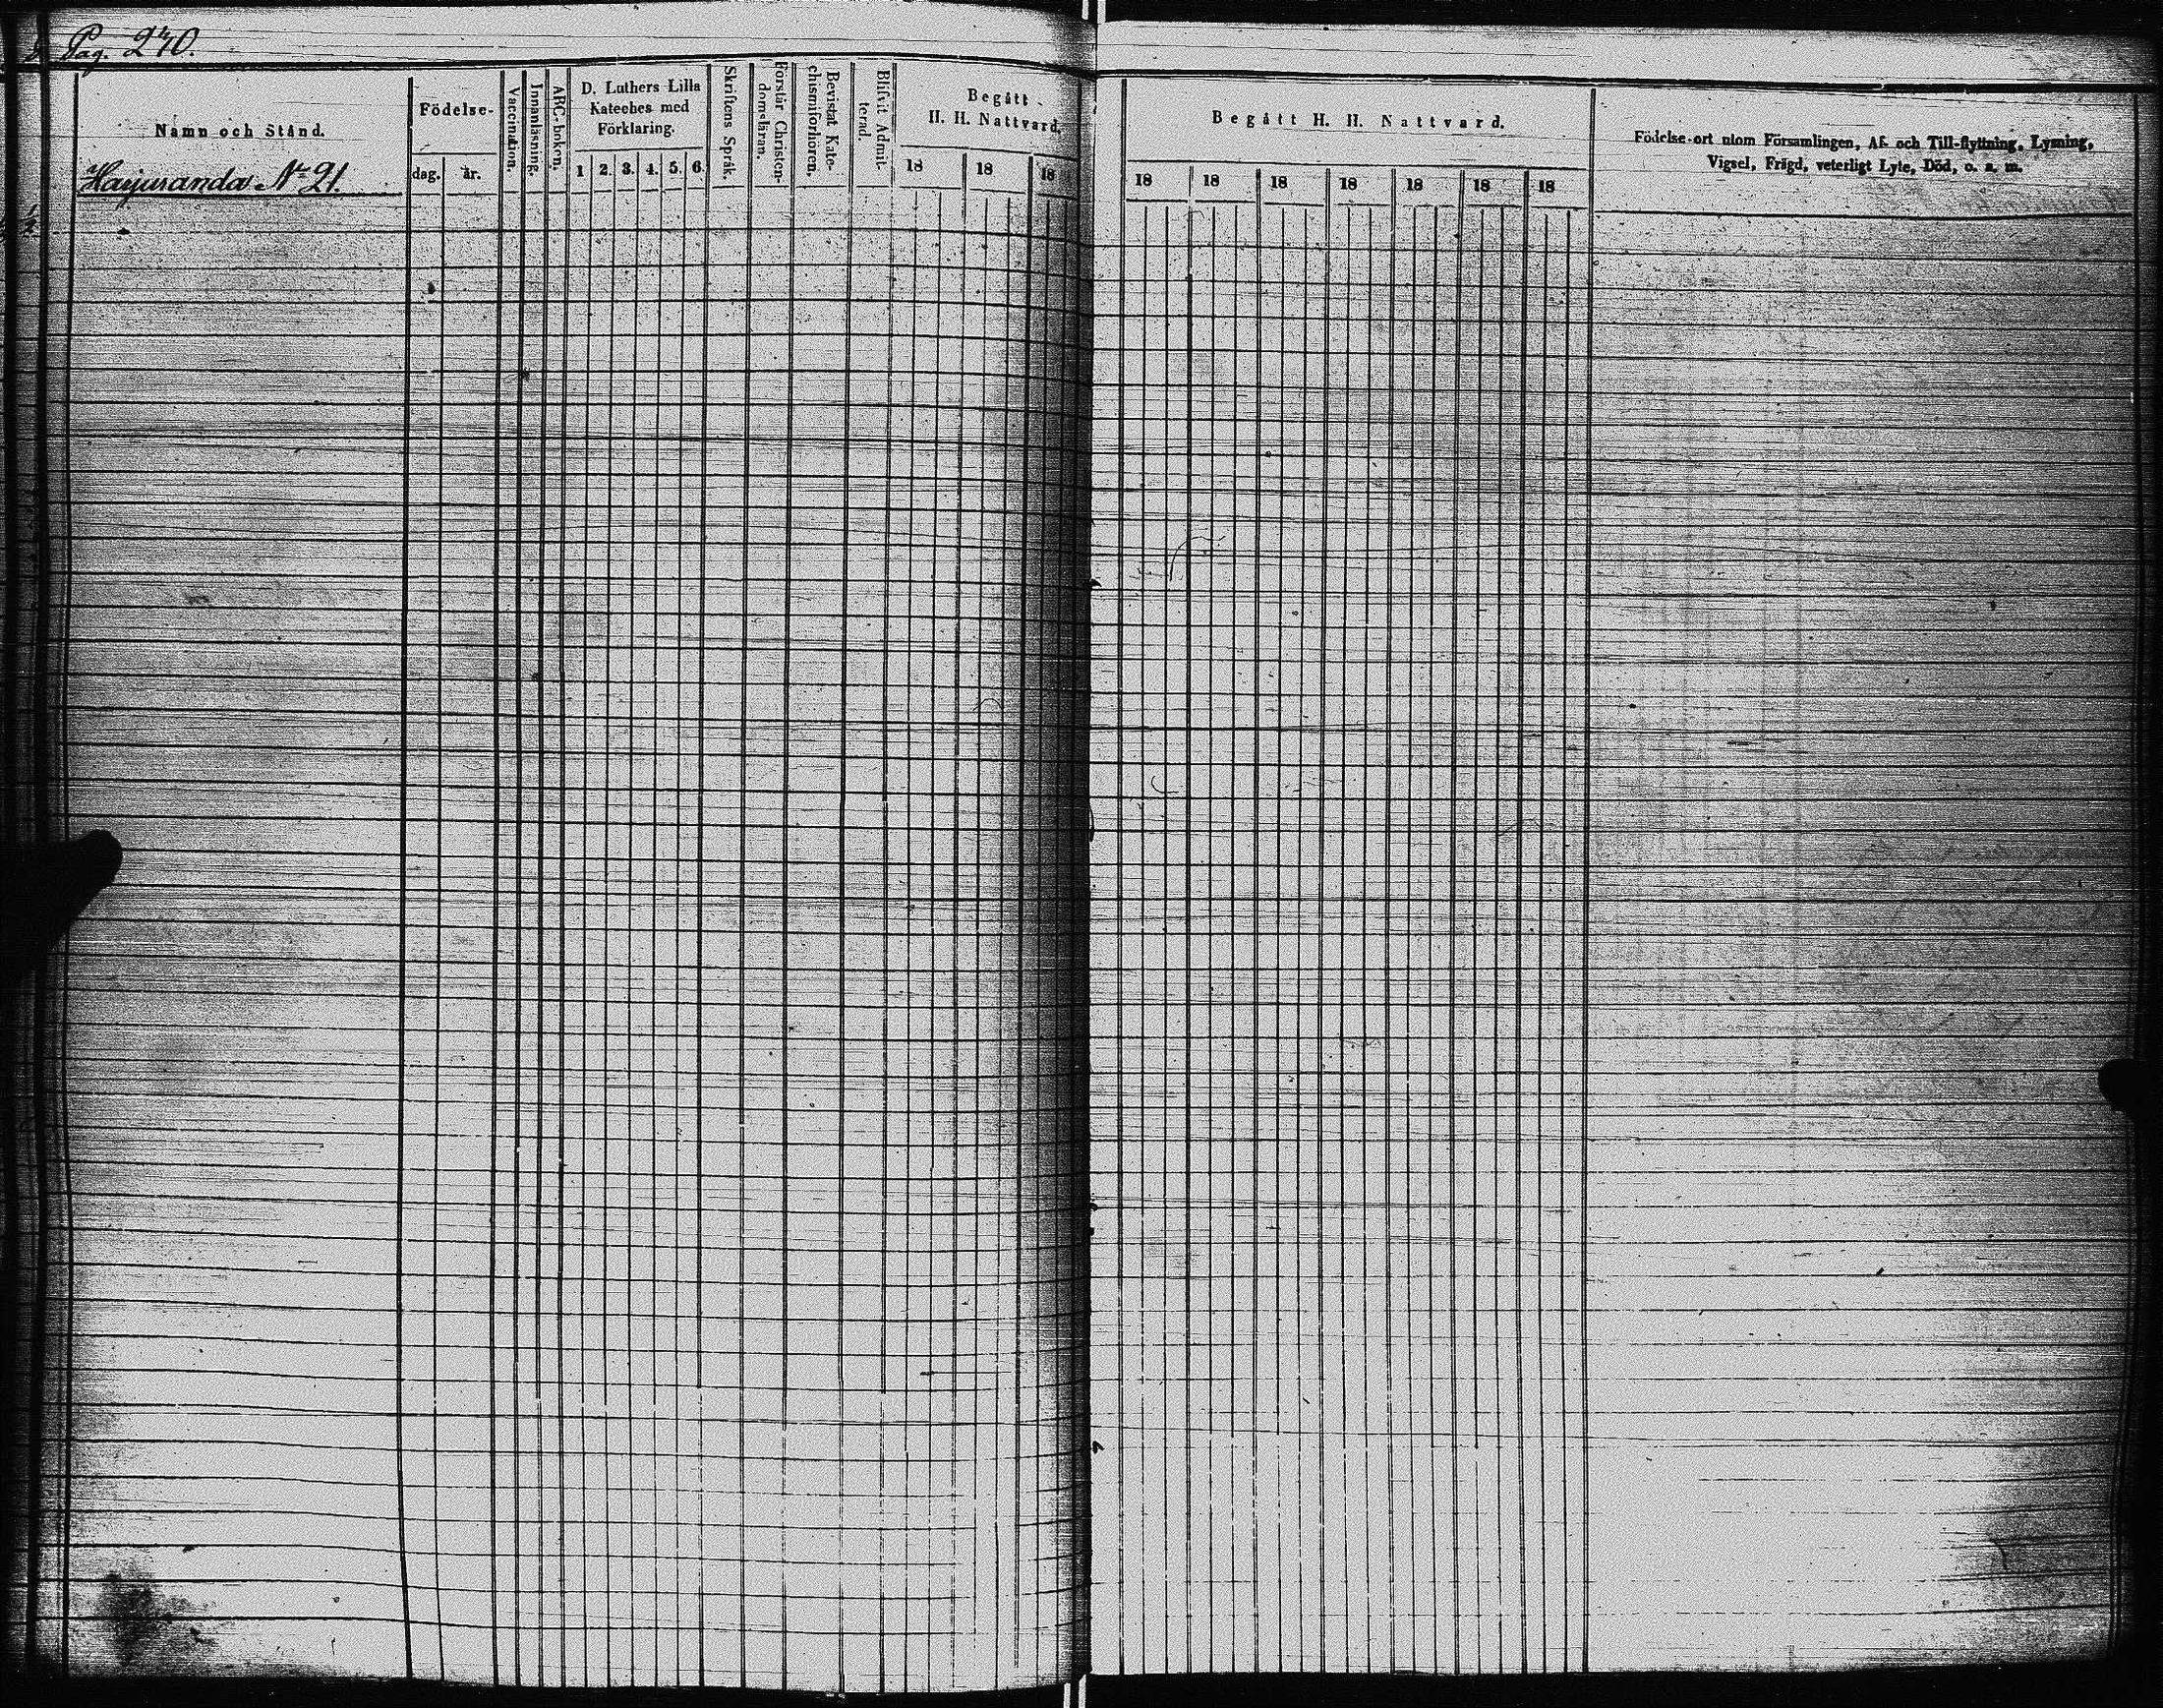 Pag. 240.
Namn och Stånd.
Harjuranda No 21.
Födelse-
dag. år.
Vaccination.
Innanläsning.
ABC-boken.
D. Luthers Lilla
Kateches med
Förklaring.
1 2. 3. 4. 5. 6.
Skriftens Språk.
Förstår Christen-
domsläran.
Bevistat Kate-
chismiförhören.
Blifvit Admit-
terad.
Begått
H. H. Nattvard.
18 18 18
Begått H. H. Nattvard.
18 18 18 18 18 18 18
Födelse-ort utom Församlingen, Af- och Till-flyttning, Lysning,
Vigsel, Frägd, veterligt Lyte, Död, o. s. m.